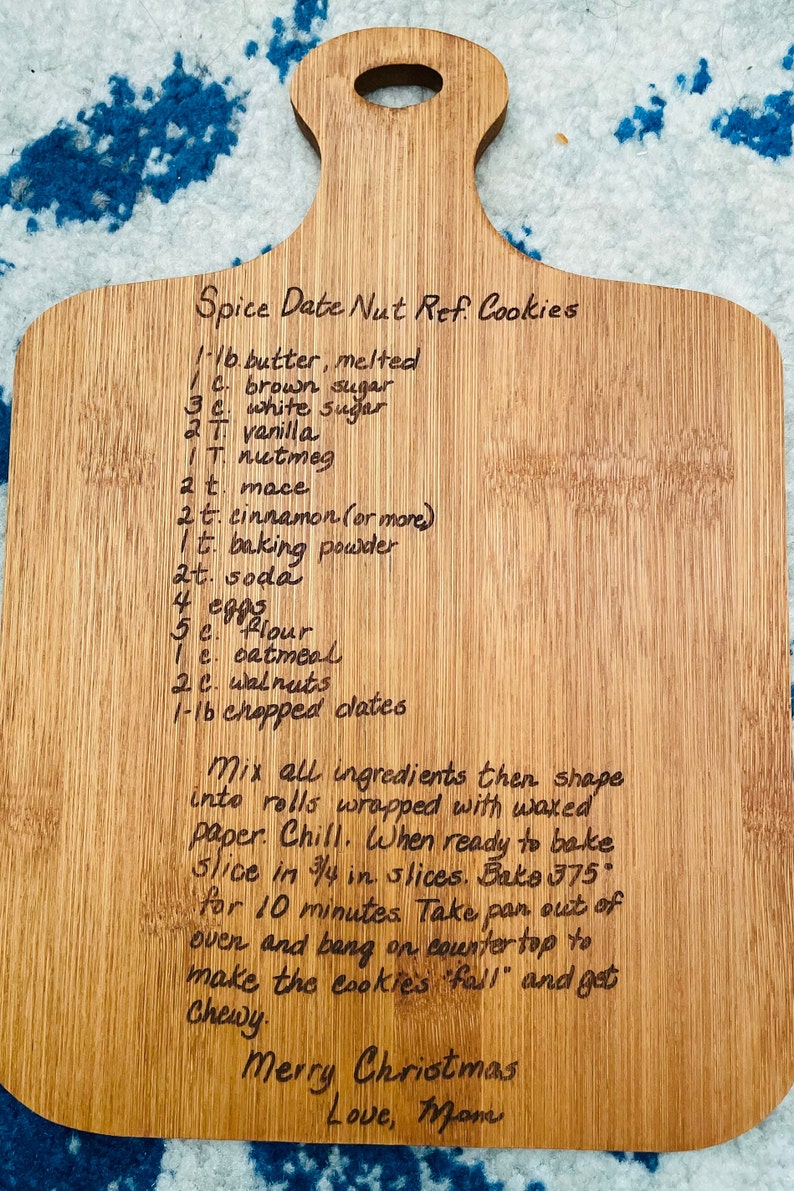 Spice Date Nut Ref. Cookies
1-lb. butter, melted
1 c. brown sugar
3 c. white sugar
2 T. vanilla
1 T. nutmeg
2 t. mace
2 t. cinnamon (or more)
1 t. baking powder
2 t. soda
4 eggs
5 c. flour
1 c. oatmeal
2 c. walnuts
1-lb chopped dates
Mix all ingredients then shape
into rolls wrapped with waxed
paper. Chill. When ready to bake
slice in 3/4 in. slices. Bake 375°
for 10 minutes. Take pan out of
oven and bang on countertop to
make the cookies "fall" and get
chewy.
Merry Christmas
Love, Mom